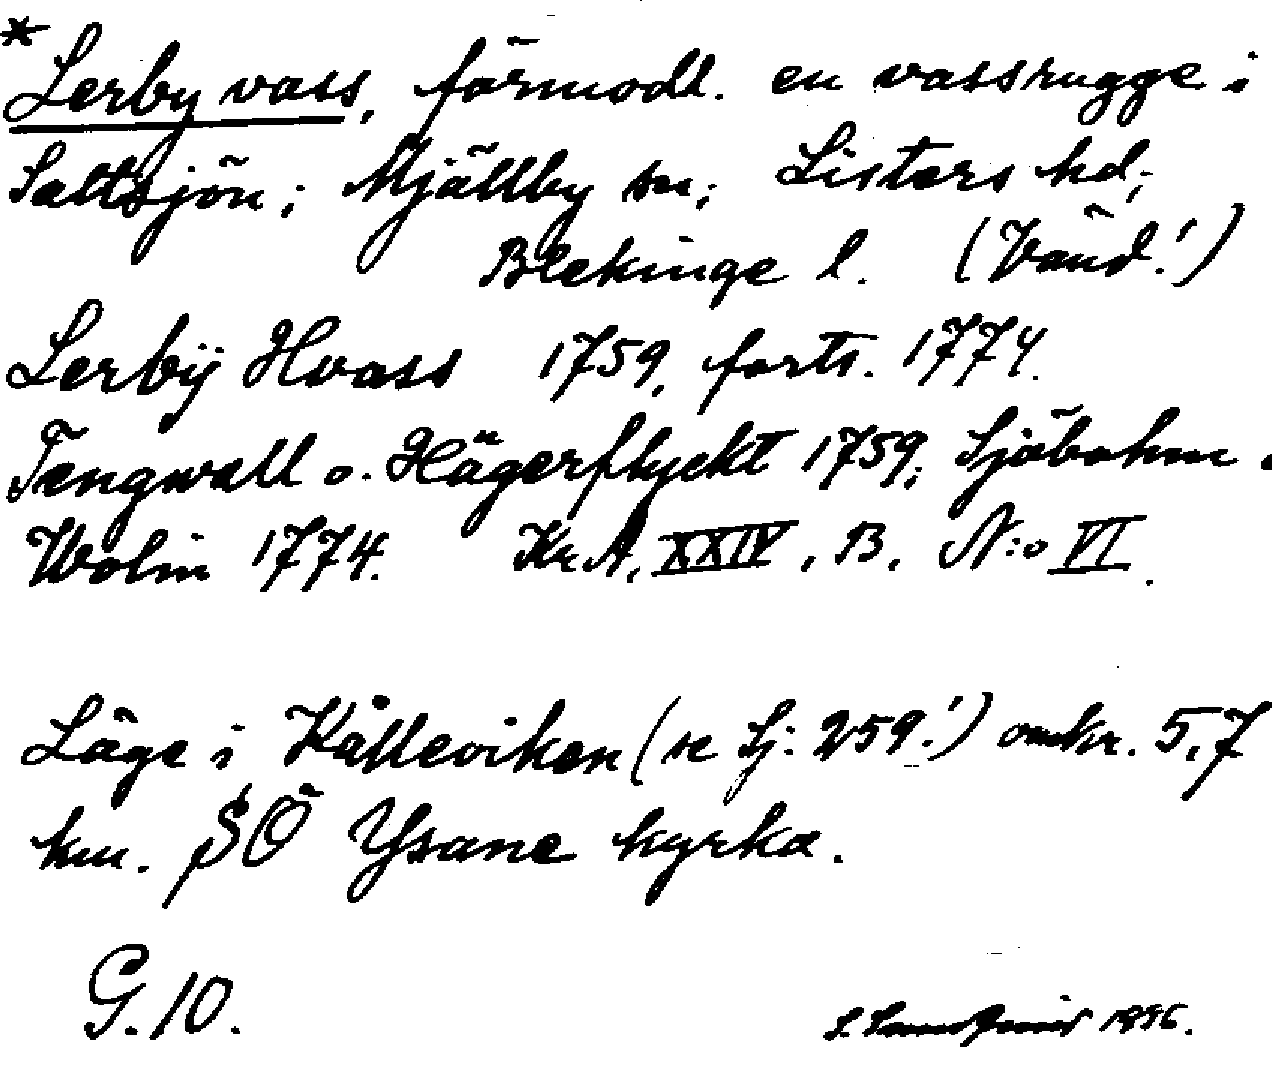 *
Lerby vass, förmodl. en vassrugge i
Saltsjön; Mjällby sn; Listers hd;
Blekinge l. (Vänd!)
Lerbÿ Hvass 1759, forts. 1774.
Tengwall o. Hägerflyckt 1759; Sjöbohm o
Wolin 1774. Kr. A, XXIV, B, N:o VI.
Läge i Kålleviken (se Sj: 259!) omkr. 5,7
km. SÖ Ysane kyrka.
G. 10.